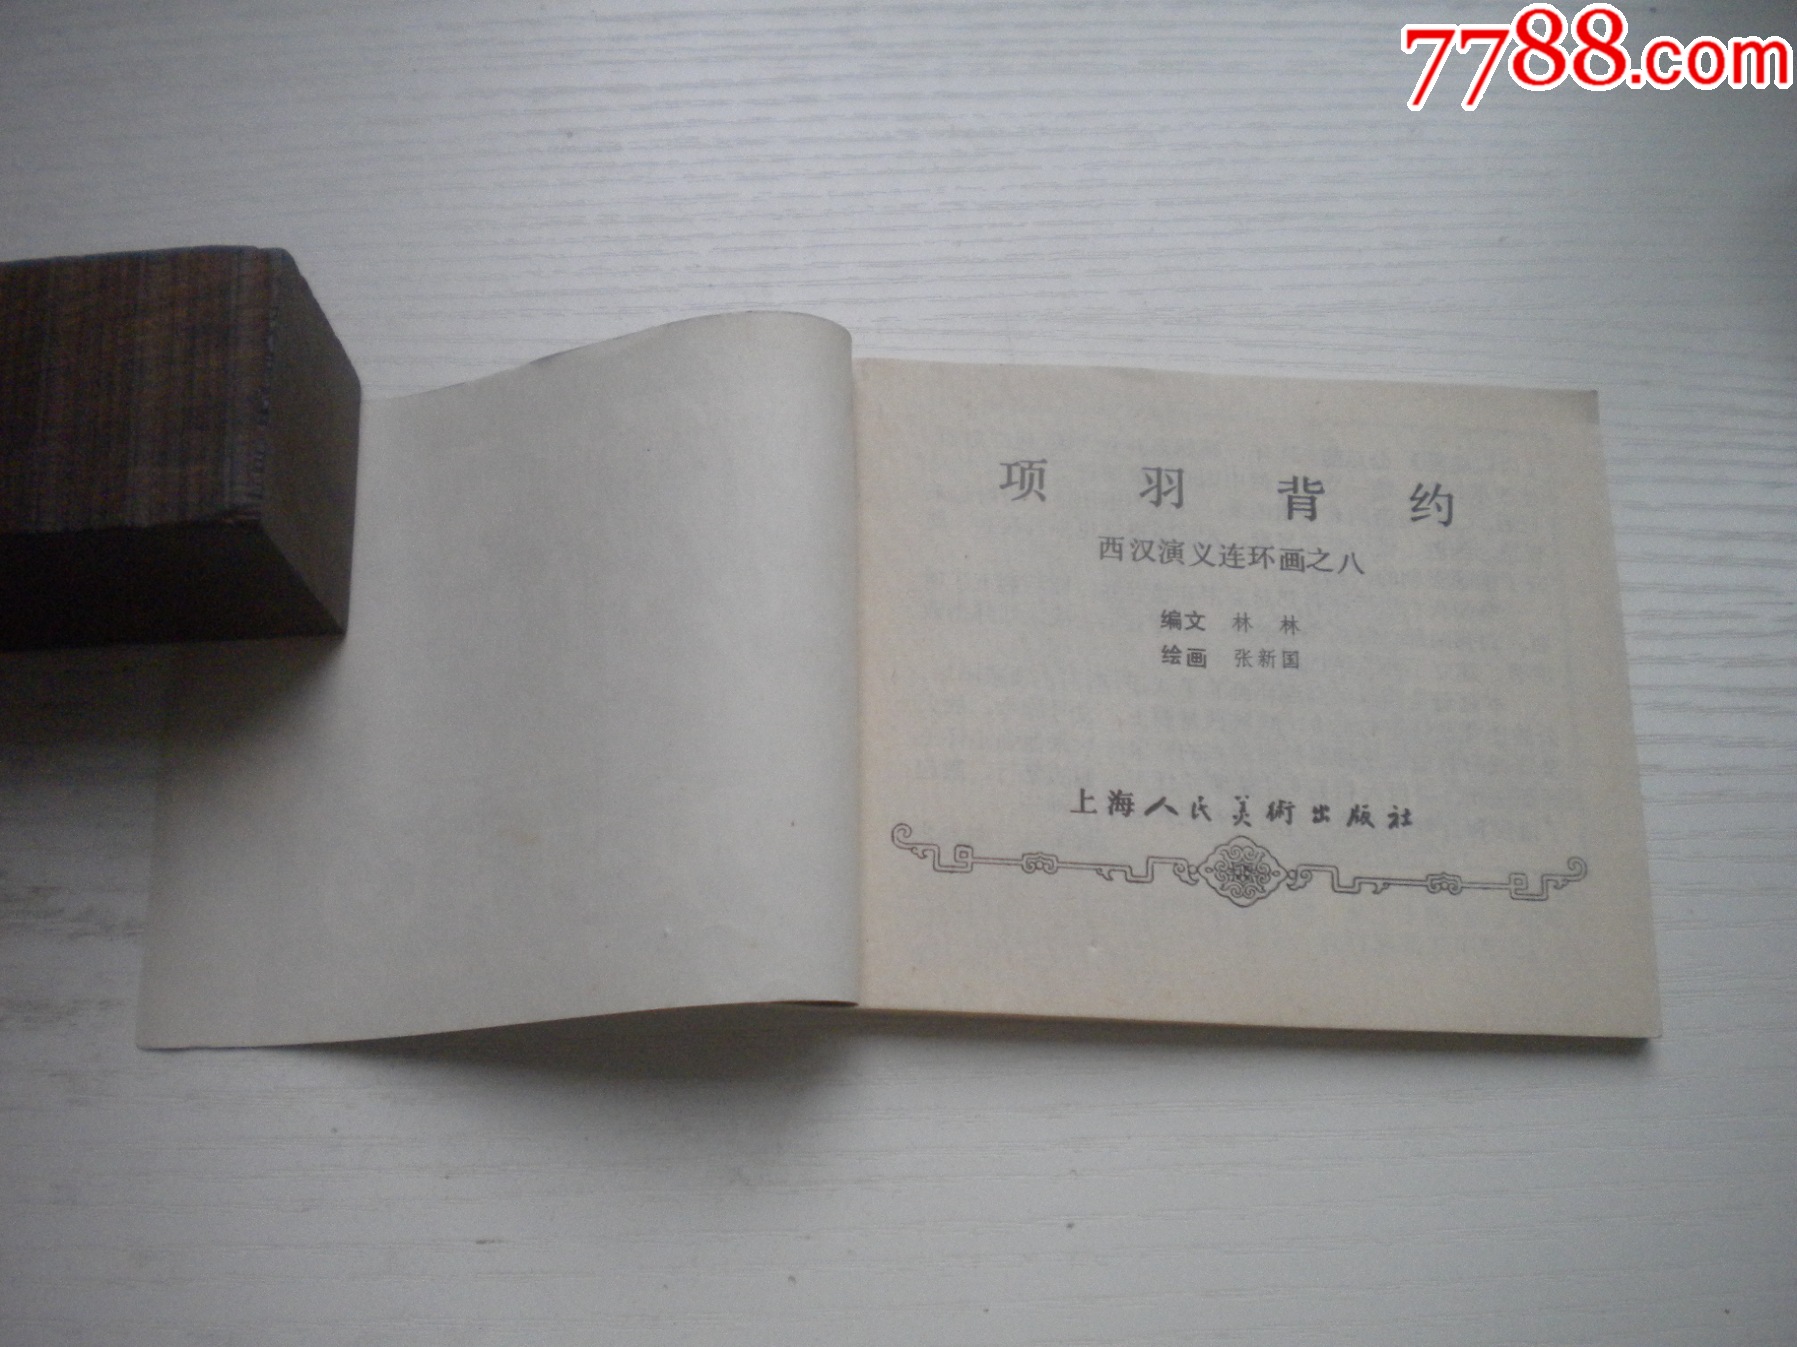 7788.com
项羽背约
西汉演义连环画之八
编文 林林
绘画 张新国
上海人民美術出版社